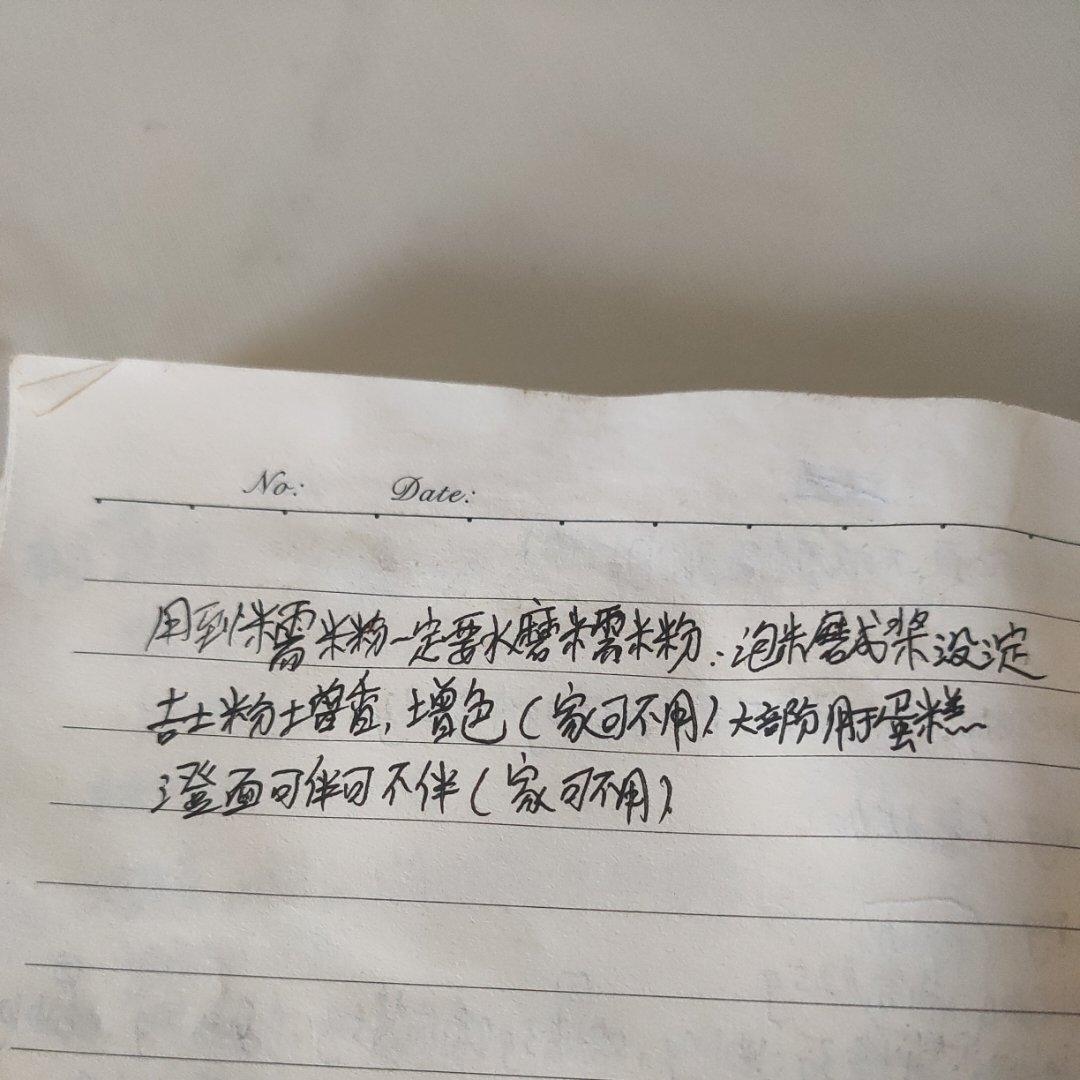 No: Date:
用到糯米粉一定要水磨糯米粉.泡米磨成浆没淀
吉士粉增香,增色(家可不用)大部阶用于蛋糕
澄面可伴可不伴(家可不用)